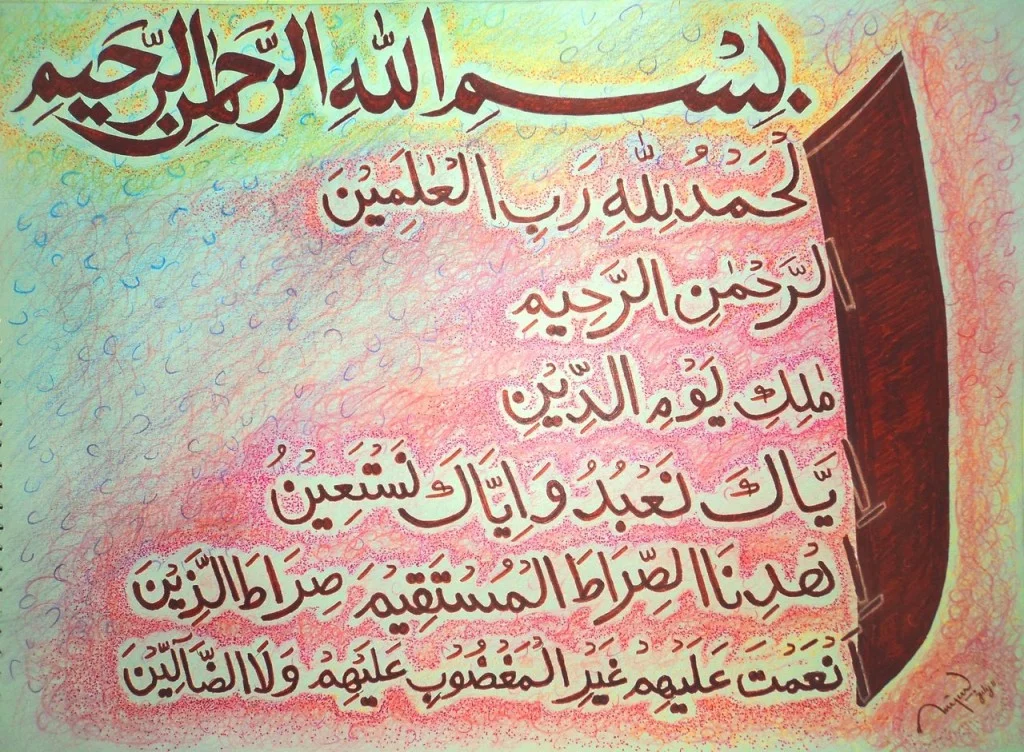 بِسْمِ اللّٰهِ الرَّحْمٰنِ الرَّحِيمِ
الْحَمْدُ لِلّٰهِ رَبِ الْعٰلَمِيْنَ
الرَّحْمٰنِ الرَّحِيمِ
مٰلِكِ يَوْمِ الدِّيْنِ
اِيَّاكَ نَعْبُدُ وَاِيَّاكَ نَسْتَعِيْنُ
اهْدِنَا الصِّرَاطَ الْمُسْتَقِيْمَ صِرَاطَ الَّذِيْنَ
اَنْعَمْتَ عَلَيْهِمْ غَيْرِ الْمَغْضُوْبِ عَلَيْهِمْ وَلَا الضَّآلِّيْنَ